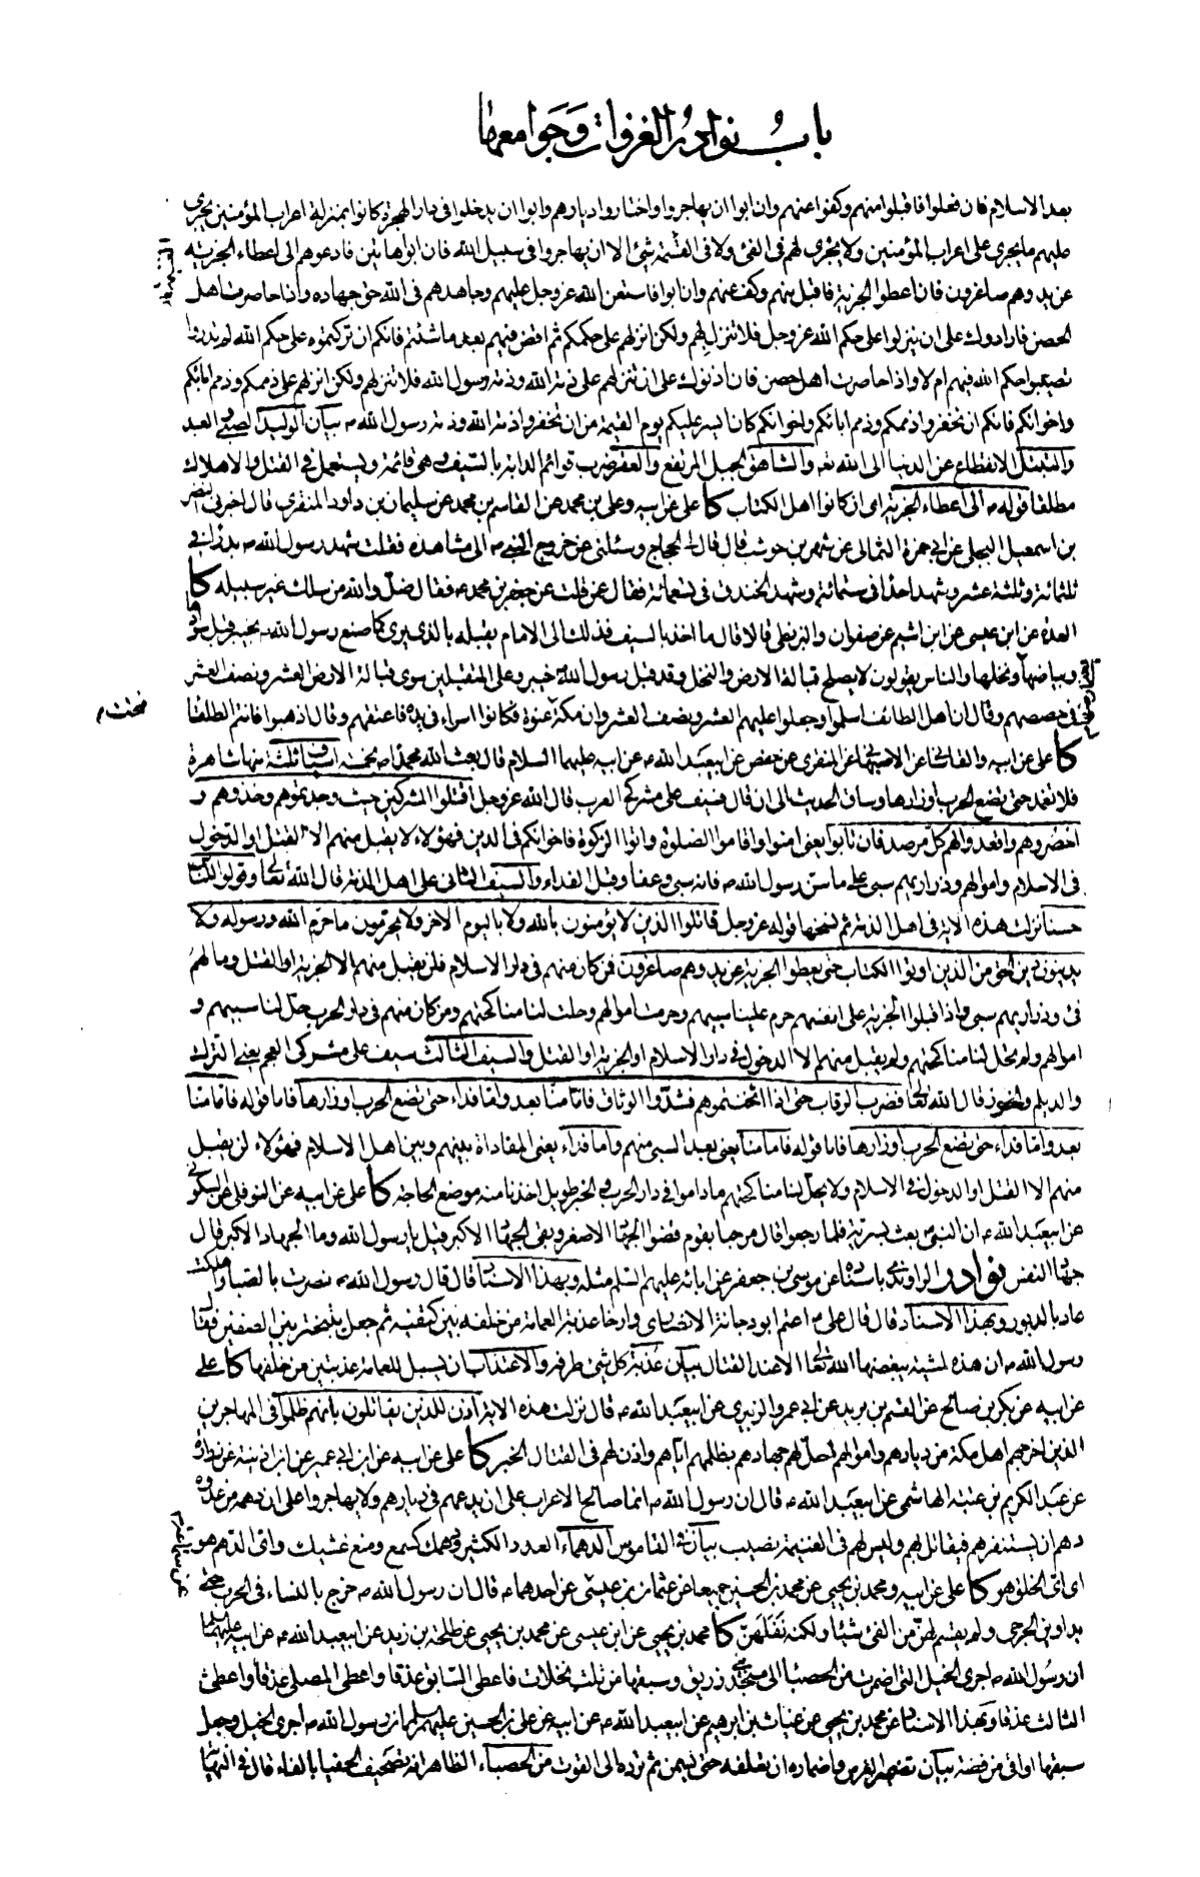 باب نوادر الغزوات وجوامعها
بعد الاسلام فان فعلوا فاقبلوا منهم وكفوا عنهم وان ابوا ان يهاجروا واختاروا ديارهم وابوا ان يدخلوا فى دار الهجرة كانوا بمنزلة اعراب المؤمنين يجرى
عليهم ما يجرى على اعراب المؤمنين ولا يجرى لهم فى الفئ ولا فى القسمة شئ الا ان يهاجروا فى سبيل الله فان ابوا هاتين فادعوهم الى اعطاء الجزية
عن يد وهم صاغرون فان اعطوا الجزية فاقبل منهم وكف عنهم وان ابوا فاستعن الله عز وجل عليهم وجاهدهم فى الله حق جهاده واذا حاصرت اهل
الحصن فارادوك على ان ينزلوا على حكم الله عز وجل فلا تنزل لهم ولكن انزلهم على حكمكم ثم اقض فيهم بعد ما شئتم فانكم ان تركتموه على حكم الله لم تدروا
تصيبوا حكم الله فيهم ام لا واذا حاصرت اهل حصن فان اذنوك على ان تنزلهم على ذمة الله وذمة رسول الله فلا تنزلهم ولكن انزلهم على ذممكم وذمم ابائكم
واخوانكم فانكم ان تخفروا ذممكم وذمم ابائكم واخوانكم كان ايسر عليكم يوم القيمة من ان تخفروا ذمة الله وذمة رسول الله ص بيان الوليد الصبى والعبد
والتبتل الانقطاع عن الدنيا الى الله تعه والشاهق الجبل المرتفع والعقر ضرب قوائم الدابة بالسيف وهى قائمة ويستعمل فى القتل والاهلاك
مطلقا قوله ص الى اعطاء الجزية اى ان كانوا اهل الكتاب كا على عن ابيه وعلى بن محمد عن القاسم بن محمد عن سليمان بن داود المنقرى قال اخبرنى النضر
بن اسمعيل البجلى عن ابى حمزة الثمالى عن شهر بن حوشب قال قال لى الحجاج وسئلنى عن خروج النبى ص الى مشاهده فقلت شهد رسول الله ص بدرا فى
ثلثمائة وثلثة عشر وشهد احدا فى ستمائة وشهد الخندق فى تسعمائة فقال عمن قلت عن جعفر بن محمد ع فقال ضل والله من سلك غير سبيله كا
العدة عن ابن عيسى عن ابن اشيم عن صفوان والبزنطى قالا قال ما اخذ بالسيف فذلك الى الامام يقبله بالذى يرى كما صنع رسول الله ص بخيبر قبل سوادها
وبياضها ونخلها والناس يقولون لا يصلح قبالة الارض والنخل وقد قبل رسول الله خيبر وعلى المتقبلين سوى قبالة الارض العشر ونصف العشر
فى حصصهم وقال ان اهل الطائف اسلموا وجعلوا عليهم العشر ونصف العشر وان مكة عنوة فكانوا اسراء فى يده فاعتقهم وقال اذهبوا فانتم الطلقا
كا على عن ابيه والقاسانى عن الاصبهانى عن المنقرى عن حفص عن ابيعبد الله ع عن ابيه عليهما السلام قال بعث الله محمدا ص بخمسة اسياف ثلثة منها شاهرة
فلا تغمد حتى تضع الحرب اوزارها وساق الحديث الى ان قال فسيف على مشركى العرب قال الله عز وجل اقتلوا المشركين حيث وجدتموهم وخذوهم و
احصروهم واقعدوا لهم كل مرصد فان تابوا يعنى امنوا واقاموا الصلوة واتوا الزكوة فاخوانكم فى الدين فهؤلاء لا يقبل منهم الا القتل او الدخول
فى الاسلام واموالهم وذراريهم سبى على ما سن رسول الله ص فانه سبى وعفا وقبل الفداء والسيف الثانى على اهل الذمة قال الله تعالى وقولوا للناس
حسنا نزلت هذه الاية فى اهل الذمة ثم نسخها قوله عز وجل قاتلوا الذين لا يؤمنون بالله ولا باليوم الاخر ولا يحرمون ما حرم الله ورسوله ولا
يدينون دين الحق من الذين اوتوا الكتاب حتى يعطوا الجزية عن يد وهم صاغرون فمن كان منهم فى دار الاسلام فلن يقبل منهم الا الجزية او القتل ومالهم
فئ وذراريهم سبى واذا قبلوا الجزية على انفسهم حرم علينا سبيهم وحرمت اموالهم وحلت لنا مناكحتهم ومن كان منهم فى دار الحرب حل لنا سبيهم و
اموالهم ولم تحل لنا مناكحتهم ولم يقبل منهم الا الدخول فى دار الاسلام او الجزية او القتل والسيف الثالث سيف على مشركى العجم يعنى الترك
والديلم والخزر قال الله تعالى فضرب الرقاب حتى اذا اثخنتموهم فشدوا الوثاق فاما منا بعد واما فداء حتى تضع الحرب اوزارها فاما قوله فاما منا
بعد واما فداء حتى تضع الحرب اوزارها فاما قوله فاما منا يعنى بعد السبى منهم واما فداء يعنى المفاداة بينهم وبين اهل الاسلام فهؤلاء لن يقبل
منهم الا القتل او الدخول فى الاسلام ولا يحل لنا مناكحتهم ما داموا فى دار الحرب الخبر طويل اخذنا منه موضع الحاجة كا على عن ابيه عن النوفلى عن السكونى
عن ابيعبد الله ع ان النبى بعث بسرية فلما رجعوا قال مرحبا بقوم قضوا الجهاد الاصغر وبقى الجهاد الاكبر قيل يا رسول الله وما الجهاد الاكبر قال
جهاد النفس نوادر الراوندى باسناده عن موسى بن جعفر عن ابائه عليهم السلم مثله وبهذا الاسناد قال قال رسول الله ص نصرت بالصبا واهلكت
عاد بالدبور وبهذا الاسناد قال قال على ع اعتم ابو دجانة الانصارى وارخا عذبة العمامة من خلفه بين كتفيه ثم جعل يتبختر بين الصفين فقال
رسول الله ص ان هذه لمشية يبغضها الله تعالى الا عند القتال بيان عذبة كل شئ طرفه والاعتذاب ان يسبل للعمامة عذبتين من خلفها كا على
عن ابيه عن بكر بن صالح عن القسم بن بريد عن ابى عمرو الزبيرى عن ابيعبد الله ع قال نزلت هذه الاية اذن للذين يقاتلون بانهم ظلموا فى المهاجرين
الذين اخرجهم اهل مكة من ديارهم واموالهم احل لهم جهادهم بظلمهم اياهم واذن لهم فى القتال الخبر كا على عن ابيه عن ابن ابى عمير عن ابن اذينة عن زرارة
عن عبد الكريم بن عتبة الهاشمى عن ابيعبد الله ع قال ان رسول الله ص انما صالح الاعراب على ان يدعهم فى ديارهم ولا يهاجروا على ان دهمه من عدوه
دهم ان يستنفرهم فيقاتل بهم وليس لهم فى الغنيمة نصيب بيان فى القاموس الدهماء العدد الكثير ودهمك كسمع ومنع غشيك واى الدهم هو
اى اى الخلق هو كا على عن ابيه ومحمد بن يحيى عن محمد بن الحسين جميعا عن عثمان بن عيسى عن احدهما ع قال ان رسول الله ص خرج بالنساء فى الحرب حتى
يداوين الجرحى ولم يقسم لهن من الفئ شيئا ولكنه نفلهن كا محمد بن يحيى عن ابن عيسى عن محمد بن يحيى عن طلحة بن زيد عن ابيعبد الله ع عن ابيه عليهما السلم
ان رسول الله ص اجرى الخيل التى اضمرت من الحصبا الى مسجد بنى زريق وسبقها من ثلث نخلات فاعطى السابق عذقا واعطى المصلى عذقا واعطى
الثالث عذقا وبهذا الاسناد عن محمد بن يحيى عن غياث بن ابرهيم عن ابيعبد الله ع عن ابيه عن على بن الحسين عليهم السلم ان رسول الله ص اجرى الخيل وجعل
سبقها اواقى من فضة بيان تضمير الفرس واضماره ان تعلفه حتى يسمن ثم ترده الى القوت من الحصباء الظاهر انه تصحيف الحفيا بالفاء قال فى النهاية